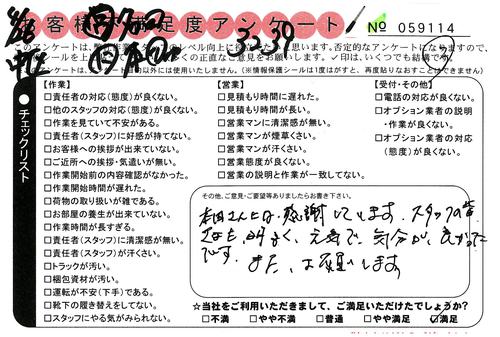 お客様不満足度アンケート
№ 059114
3239
チェックリスト
【作業】
□責任者の対応(態度)が良くない。
□他のスタッフの対応(態度)が良くない。
□作業を見ていて不安がある。
□責任者(スタッフ)に好感が持てない。
□お客様への挨拶が出来ていない。
□ご近所への挨拶・気遣いが無い。
□作業開始前の内容確認がなかった。
□作業開始時間が遅れた。
□荷物の取り扱いが雑である。
□お部屋の養生が出来ていない。
□作業時間が長すぎる。
□責任者(スタッフ)に清潔感が無い。
□責任者(スタッフ)が汗くさい。
□トラックが汚い。
□梱包資材が汚い。
□運転が不安(下手)である。
□靴下の履き替えをしてない。
□スタッフにやる気がみられない。
【営業】
□見積もり時間に遅れた。
□見積もり時間が長い。
□営業マンに清潔感が無い。
□営業マンが煙草くさい。
□営業マンが汗くさい。
□営業態度が良くない。
□営業の説明と作業が一致してない。
【受付・その他】
□電話の対応が良くない。
□オプション業者の説明
・作業が良くない。
□オプション業者の対応
(態度)が良くない。
その他、ご意見・ご要望等ありましたらお書き下さい。
さんには、感謝しています。スタッフの皆
さんも 明るく、元気で、気分が、良かった
です。
また、お願いします
☆当社をご利用いただきまして、ご満足いただけたでしょうか?
□不満 □やや不満 □普通 □やや満足 ☑満足